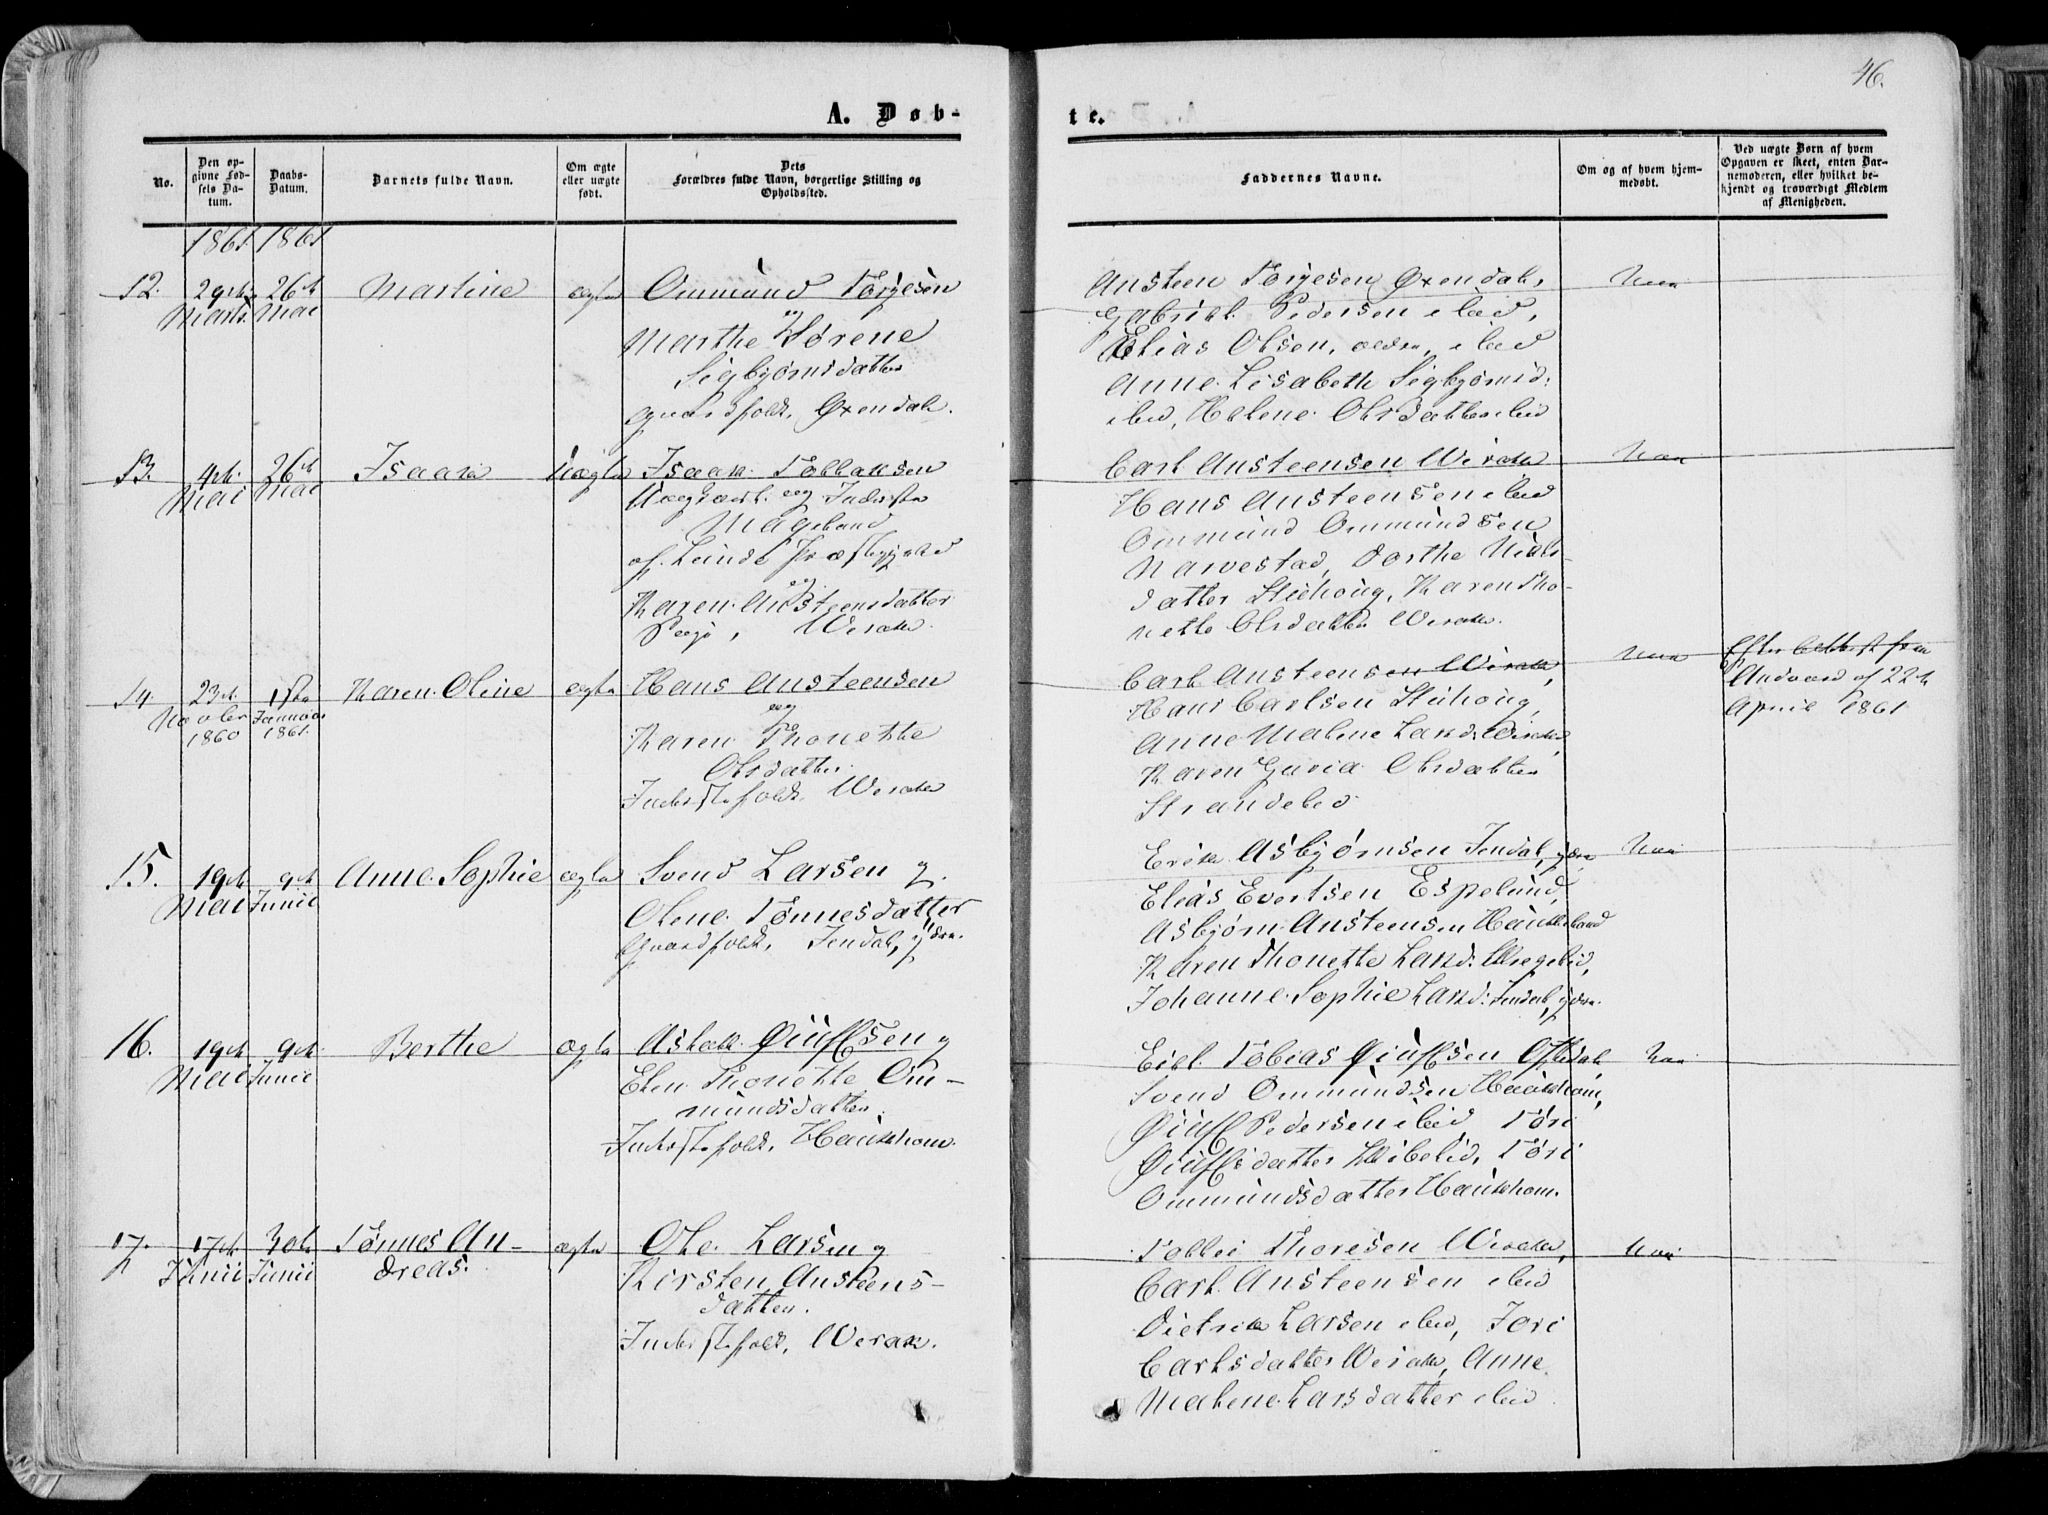 46.
A. Døb-
te.
No.
Den op-
givne Fød-
sels Da-
tum.
Daabs-
Datum.
Barnets fulde Navn.
Om ægte
eller uægte
født.
Dets
Forældres fulde Navn, borgerlige Stilling og
Opholdssted.
Faddernes Navne.
Om og af hvem hjem-
medøbt.
Ved uægte Børn af hvem
Opgaven er skeet, enten Bar-
nemoderen, eller hvilket be-
kjendt og troværdigt Medlem
af Menigheden.
1861 1861
12.
29de
Marts
26de
Mai
Martine
ægte
Ommund Tørjesen
og
Marthe Sørene
Sigbjørnsdatter
Gaardfolk, Øxendal.
Ansteen Tørjesen Øxendal,
Gabriel Pedersen ibid,
Elias Olsen, ældre, ibid
Anne Lisabeth Sigbjørnsd:
ibid, Helene Olsdatter ibid
Nei
13.
4de
Mai
26de
Mai
Isaak
Uægte
Isaak Tollaksen
Ungkarl og Inderste
Mageland
af Lunde Præstegjeld
og
Karen Ansteensdatter
Pige, Weraas.
Carl Ansteensen
Hans Ansteensen ibid
Ommund Ommundsen
Navestad, Dorthe Niels-
datter Stiihoug, Karen Tho-
nette Olsdatter
Nei
14
23de
1860
1ste
Januar
1861.
Karen Oline
ægte
Hans Ansteensen
og
Karen Thonette
Olsdatter
Inderstefolk,
Carl Ansteensen
Hans Carlsen Stiihoug,
Anne Malene Larsd.
Karen Olsdatter
Nei
Efter fra
af 22de
April 1861
15.
19de
Mai
9de
Junii
Anne Sophie
ægte
Svend Larsen og
Olene Tønnesdatter
Gaardfolk, Jendal, ydre.
Erik Asbjørnsen Jendal, ydre
Elias Evertsen Espelund,
Asbjørn Ansteensen Haukland
Karen Thonette Larsd:
Johanne Sophie Larsd: Jendal, ydre.
Nei
16.
19de
Mai
9de
Junii
Berthe
ægte
Aslak Øiulfsen og
Elen Thonette Om-
mundsdatter.
Inderstefolk, Haukhom.
Eiel Tobias Øiulfsen Oftedal,
Svend Ommundsen Haukhom,
Øiulf Pedersen ibid Tøri
Øiulfsdatter Tøri
Ommundsdatter Haukhom.
Nei
17.
17de
Junii
30te
Junii
Tønnes An-
dreas.
ægte
Ole Larsen og
Kirsten Ansteens-
datter.
Inderstefolk,
Tollei Thoresen
Carl Ansteensen ibid
Dietrik Larsen ibid, Jori
Carlsdatter Anne
Malene Larsdatter ibid
Nei